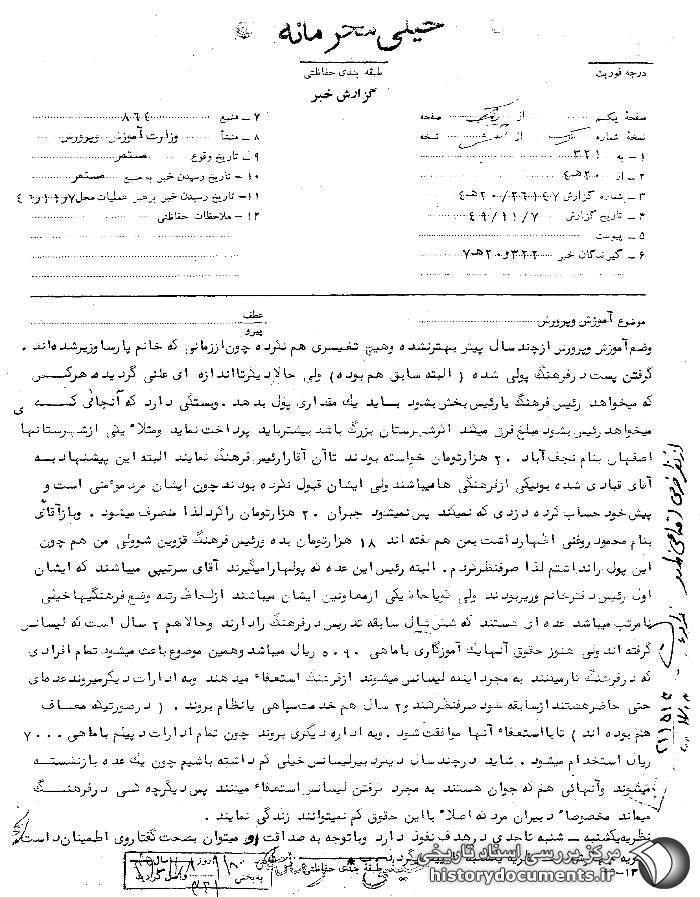 خیلی محرمانه
درجه فوریت
طبقه بندی حفاظتی
گزارش خبر
صفحهٔ یکم از یک صفحه
نسخهٔ شماره از نسخه
۱ـ به ۳۲۱
۲ـ از ۲۰هـ۴
۳ـ شماره گزارش ۲۶۱۴۷/۲۰هـ۴
۴ـ تاریخ گزارش ۴۹/۱۱/۷
۵ـ پیوست
۶ـ گیرندگان خبر ۳۲۲و۲۰هـ۷
۷ـ منبع ۸۶۴
۸ـ منشأ وزارت آموزش و پرورش
۹ـ تاریخ وقوع مستمر
۱۰ـ تاریخ رسیدن خبر به منبع مستمر
۱۱ـ تاریخ رسیدن خبر برهبر عملیات محل
۱۲ـ ملاحظات حفاظتی
موضوع آموزش و پرورش
عطف
پیرو
وضع آموزش و پرورش از چند سال پیش بهتر نشده و هیچ تغییری هم نکرده چون از زمانی که خانم پارسا وزیر شده اند.
گرفتن پست در فرهنگ پولی شده (البته سابق هم بوده) ولی حالا دیگر تا اندازه ای علنی گردیده هرکس
که میخواهد رئیس فرهنگ یا رئیس بخش بشود باید یک مقداری پول بدهد. و بستگی دارد که آنجائی که
میخواهد رئیس بشود مبلغ فرق میکند اگر شهرستان بزرگ باشد بیشتر باید پرداخت نماید و مثلا یکی از شهرستانها
اصفهان بنام نجف آباد ۲۰ هزار تومان خواسته بودند تا آن آقا را رئیس فرهنگ نمایند البته این پیشنهاد به
آقای قبادی شده بود یکی از فرهنگی ها میباشند ولی ایشان قبول نکرده بودند چون ایشان مرد مؤمنی است و
پیش خود حساب کرده دزدی که نمیکند پس نمیشود جبران ۲۰ هزار تومان را کرد لذا منصرف میشود. و باز آقای
بنام محمود روغنی اظهار داشت بمن هم گفته اند ۱۸ هزار تومان بده و رئیس فرهنگ قزوین شو ولی من هم چون
این پول را نداشتم لذا صرفنظر کردم. البته رئیس این عده که پولها را میگیرند آقای سرتیپی میباشند که ایشان
اول رئیس دفتر خانم وزیر بودند ولی گویا حالا یکی از معاونین ایشان میباشند از لحاظ رتبه وضع فرهنگیها خیلی
نامرتب میباشد عده ای هستند که شش سال سابقه تدریس در فرهنگ را دارند و حالا هم ۲ سال است که لیسانس
گرفته اند ولی هنوز حقوق آنها یک آموزگاری با ماهی ۵۰۹۰ ریال میباشد و همین موضوع باعث میشود تمام افرادی
که در فرهنگ کار میکنند به مجرد اینکه لیسانس میشوند از فرهنگ استعفاء میدهند و به ادارات دیگر میروند عده ای
حتی حاضر هستند از سابقه خود صرفنظر کنند و ۲ سال هم خدمت سپاهی یا نظام بروند. (در صورتیکه معاف
هم بوده اند) تا با استعفاء آنها موافقت شود. و به اداره دیگری بروند چون تمام ادارات دیپلم با ماهی ۷۰۰۰
ریال استخدام میشود. شاید در چند سال دیگر دبیر لیسانس خیلی کم داشته باشیم چون یک عده بازنشسته
میشوند و آنهائی هم که جوان هستند به مجرد گرفتن لیسانس استعفاء میکنند پس دیگر چه کسی در فرهنگ
میماند مخصوصاً دبیران مرد که اصلاً با این حقوق کم نمیتوانند زندگی نمایند.
نظریه یکشنبه ـ شنبه تا حدی در هدف نفوذ دارد و با توجه به صداقت او میتوان بصحت گفتار وی اطمینان داشت.
۱۳ـ
طبقه بندی حفاظتی
مرکز بررسی اسناد تاریخی
historydocuments.ir